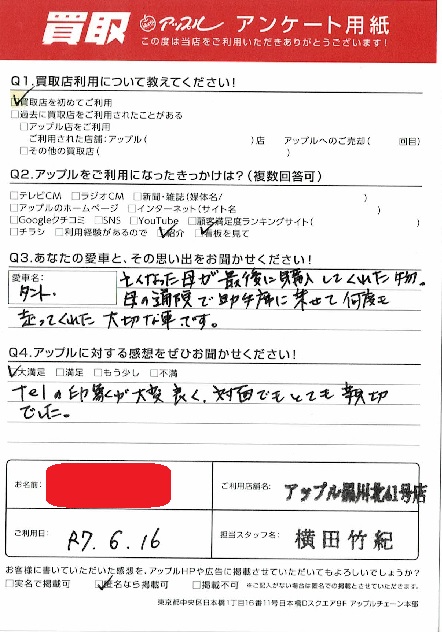 買取 アップル アンケート用紙
この度は当店をご利用いただきありがとうございます!
Q1.買取店利用について教えてください!
☑買取店を初めてご利用
□過去に買取店をご利用されたことがある
□アップル店をご利用
ご利用された店舗:アップル( )店 アップルへのご売却( 回目)
□その他の買取店( )
Q2.アップルをご利用になったきっかけは?(複数回答可)
□テレビCM □ラジオCM □新聞・雑誌(媒体名/ )
□アップルのホームページ □インターネット(サイト名 )
□Googleクチコミ □SNS □YouTube □顧客満足度ランキングサイト( )
□チラシ □利用経験があるので ☑紹介 ☑看板を見て
Q3.あなたの愛車と、その思い出をお聞かせください!
愛車名:
タント
亡くなった母が最後に購入してくれた物。
母の通院で助手席に乗せて何度も
走ってくれた大切な車です。
Q4.アップルに対する感想をぜひお聞かせください!
☑大満足 □満足 □もう少し □不満
telの印象が大変良く、対面でもとても親切
でした。
お名前:
ご利用店舗名:
アップル 川北41号店
ご利用日:
R7.6.16
担当スタッフ名:
横田竹紀
お客様に書いていただいた感想を、アップルHPや広告に掲載させていただいてもよろしいでしょうか?
□実名で掲載可 ☑匿名なら掲載可 □掲載不可 ※ご記入がない場合は匿名での掲載とさせていただきます。
東京都中央区日本橋1丁目16番11号日本橋Dスクエア9F アップルチェーン本部